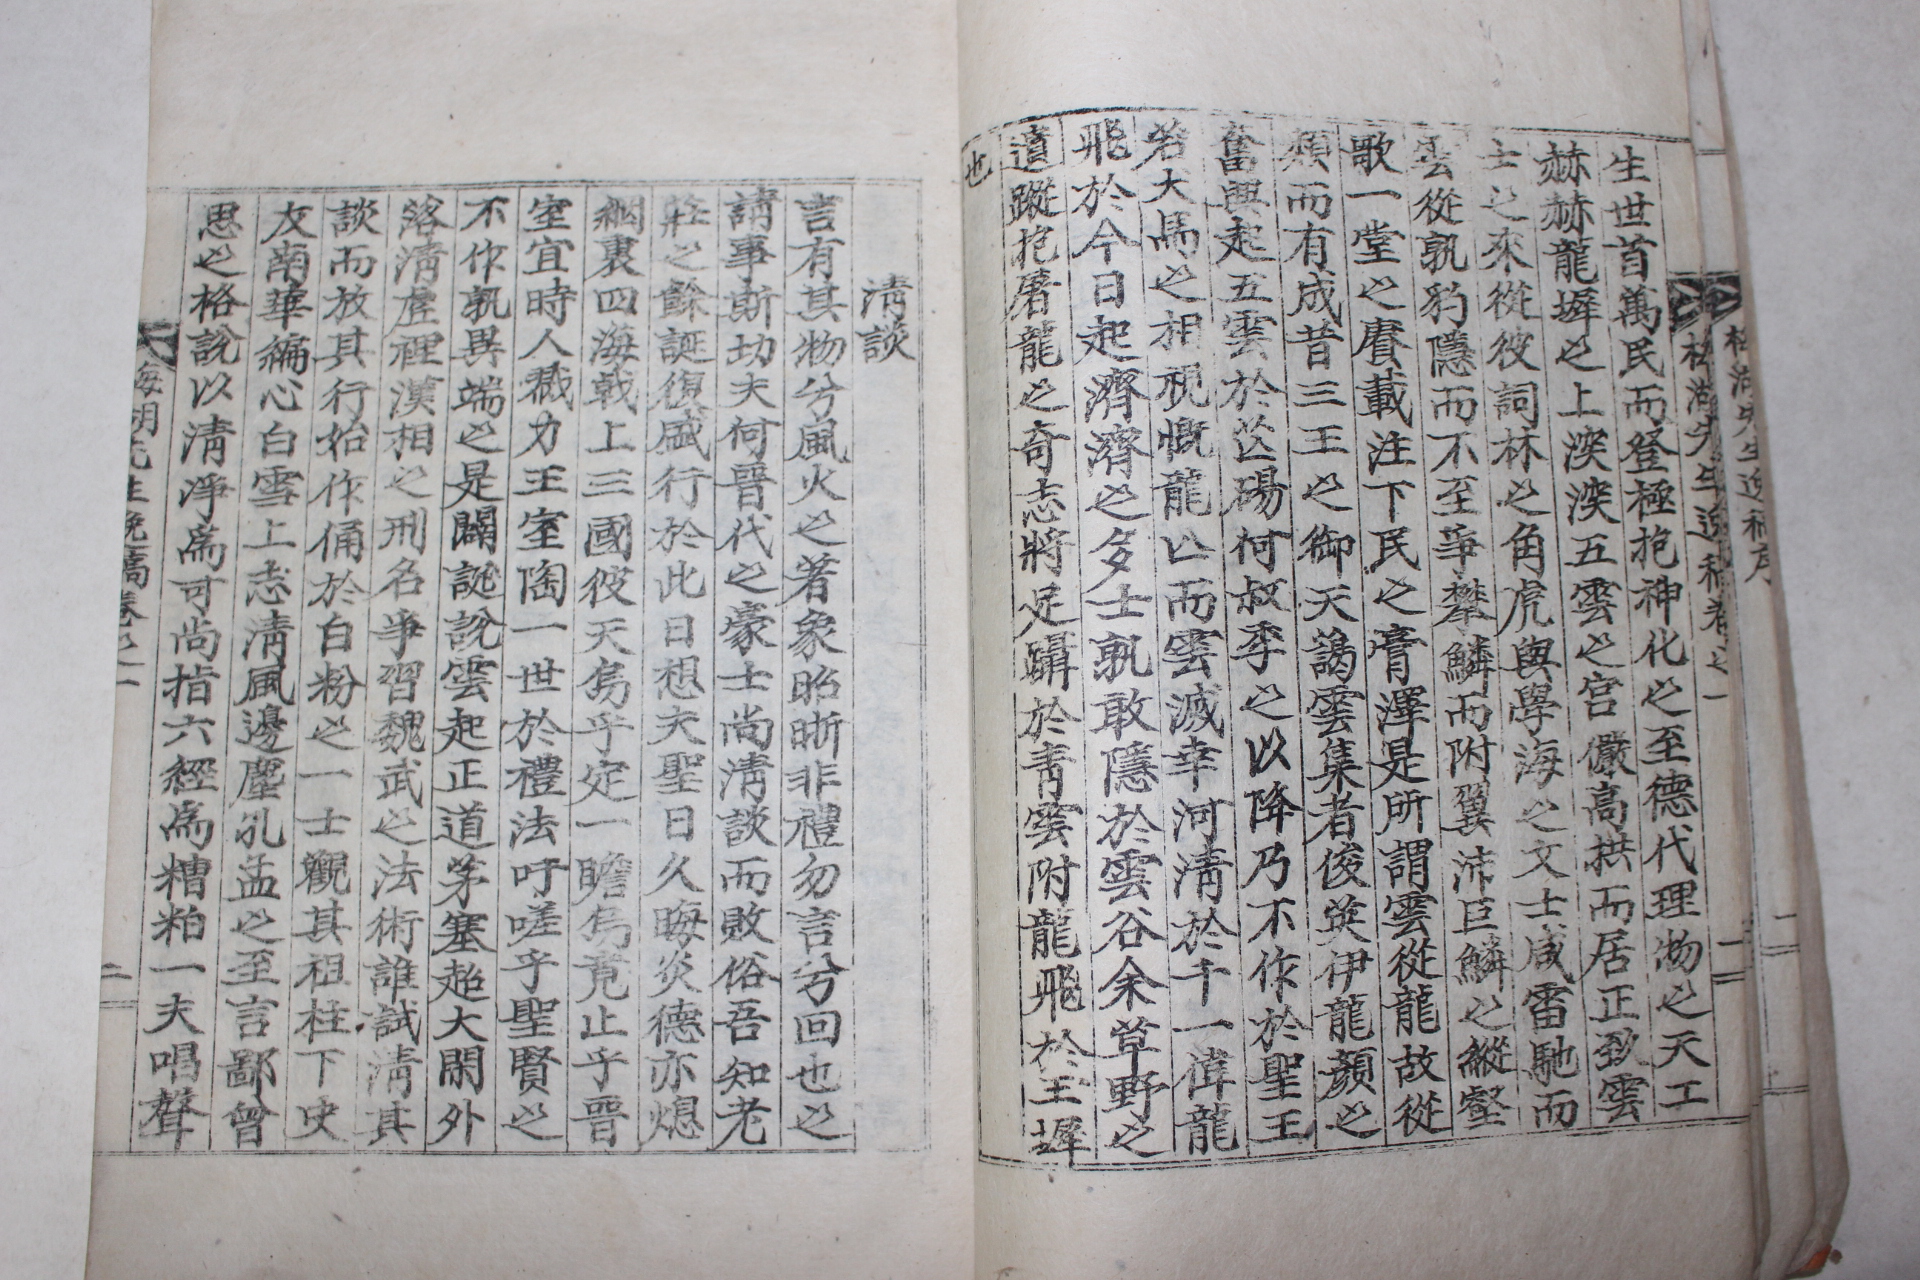 生世首萬民而登極抱神化之至德代理物之天工
赫赫龍墀之上深深五雲之宮儼高拱而居正致雲
士之來從彼詞林之角虎與學海之文士咸雷馳而
雲從孰豹隱而不至爭攀鱗而附翼沛巨鱗之縱壑
歌一堂之賡載注下民之膏澤是所謂雲從龍故從
類而有成昔三王之御天藹雲集者俊英伊龍顏之
奮興起五雲於芒碭何叔季之以降乃不作於聖王
若犬馬之相視慨龍亡而雲滅幸河淸於千一偉龍
飛於今日起濟濟之多士孰敢隱於雲谷余草野之
遺蹤抱屠龍之奇志將足躡於靑雲附龍飛於玉墀
也
淸談
言有其物兮風火之著象昭晣非禮勿言兮回也之
請事斯切夫何晉代之豪士尚淸談而敗俗吾知老
莊之餘誕復盛行於此日想夫聖日久晦炎德亦熄
網裏四海戟上三國彼天烏乎定一瞻烏竟止乎晉
室宜時人戮力王室陶一世於禮法吁嗟乎聖賢之
不作孰異端之是闢誕說雲起正道茅塞超大閑外
落淸虛裡漢相之刑名爭習魏武之法術誰試淸其
談而放其行始作俑於白粉之一士觀其祖柱下史
友南華編心白雪上志淸風邊塵孔孟之至言鄙曾
思之格說以淸淨爲可尚指六經爲糟粕一夫唱聲
梅湖先生逸稿卷之一
二
梅湖先生逸稿卷之一
一
梅湖先生逸稿序